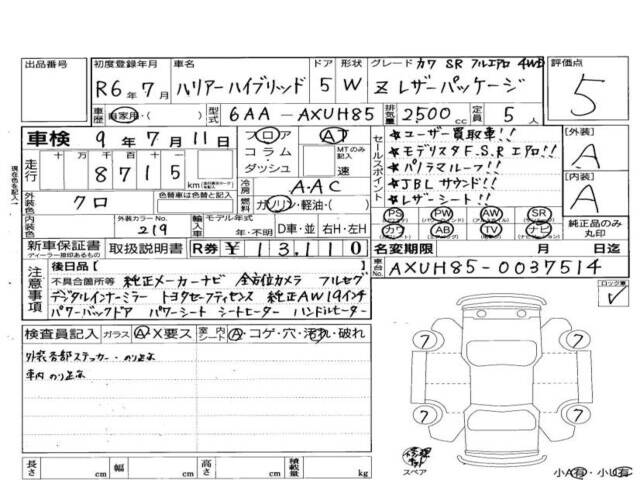 出品番号
初度登録年月 R6年7月
車名 ハリアーハイブリッド
ドア 5
形状 W
グレード カワ SR フルエアロ 4WD
Z レザーパッケージ
評価点 5
車歴 自家用・( )
型式 6AA-AXUH85
排気量 2500 cc
定員 5人
車検 9年7月11日
フロア AT
コラム・ MTのみ記入
ダッシュ 速
走行 十 万 千 百 十 一
8715 km
現在色を記入
外装色 クロ
色替車は色替と記入
冷房 AAC
燃料 ガソリン・軽油・( )
外装カラーNo. 219
輸入車 モデル年式 年・不明 D車・並 右H・左H
セールスポイント
★ユーザー買取車!!
★モデリスタF.S.Rエアロ!!
★パノラマルーフ!!
★JBLサウンド!!
★レザーシート!!
[外装] A
[内装] A
PS PW AW SR
カワ AB TV ナビ
純正品のみ丸印
新車保証書 取扱説明書 R券 ¥13,110
ディーラー捺印あるもの
名変期限 月 日迄
車台No. AXUH85-0037514
注意事項
後日品 [ ]
不具合箇所等 純正メーカーナビ 全方位カメラ フルセグ
デジタルインナーミラー トヨタセーフティセンス 純正AW19インチ
パワーバックドア パワーシート シートヒーター ハンドルヒーター
ロック車 ✓
検査員記入 ガラス A・X要ス 室内シート A・コゲ・穴・汚れ・破れ
外装各部ステッカー・のり跡
車内 のり跡
7 7
7 7
長さ cm 幅 cm 高さ cm 積載量 kg
修理キット
スペア
小A有・小U有